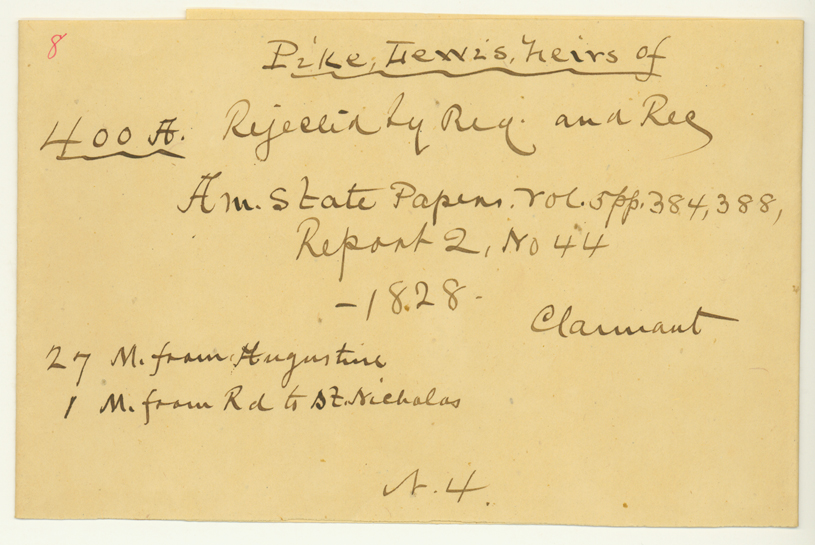 8
Pike, Lewis, heirs of
400 A. Rejected by Reg. and Rec
Am. State Papers. Vol. 5 pp. 384, 388,
Report 2, No 44
-1828-
Claimant
27 M. from Augustine
1 M. from Rd to St. Nicholas
N. 4.